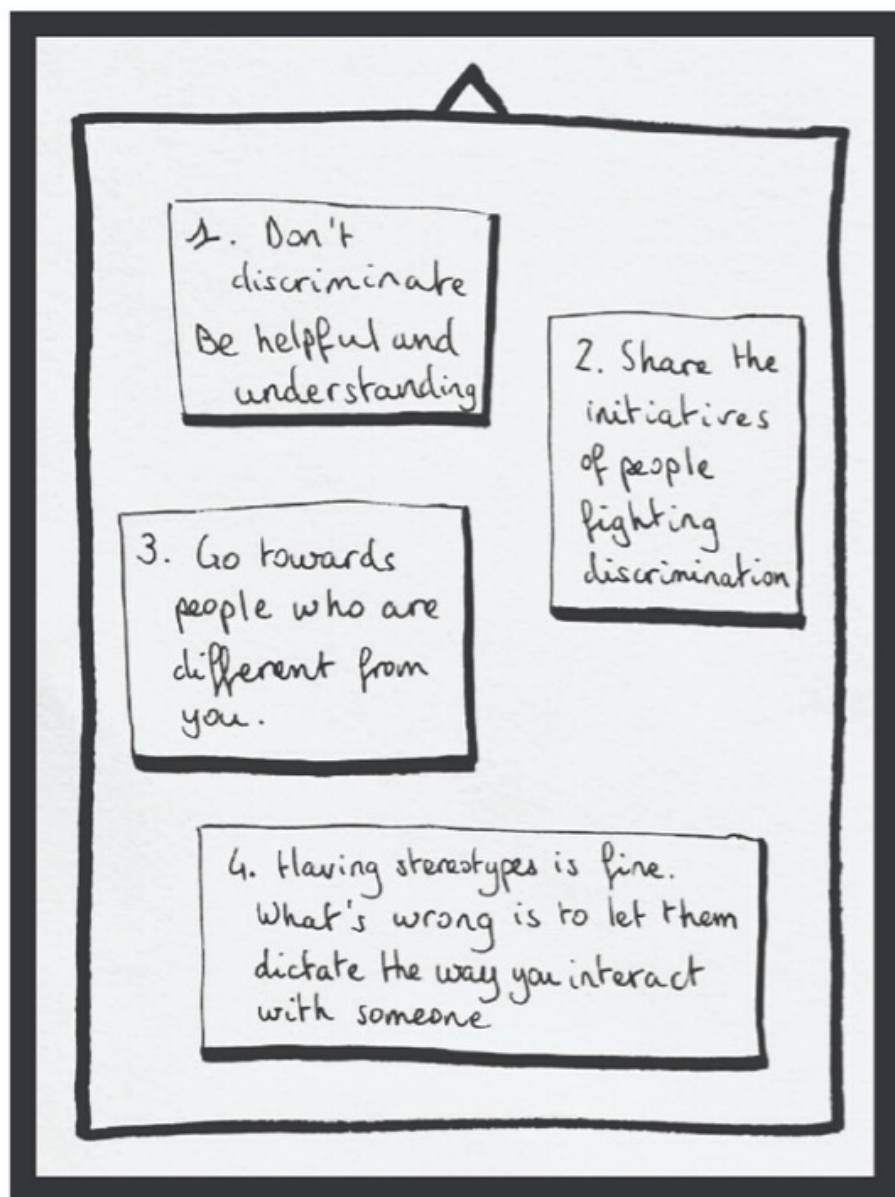 1. Don't
discriminate
Be helpful and
understanding
2. Share the
initiatives
of people
fighting
discrimination
3. Go towards
people who are
different from
you.
4. Having stereotypes is fine.
What's wrong is to let them
dictate the way you interact
with someone